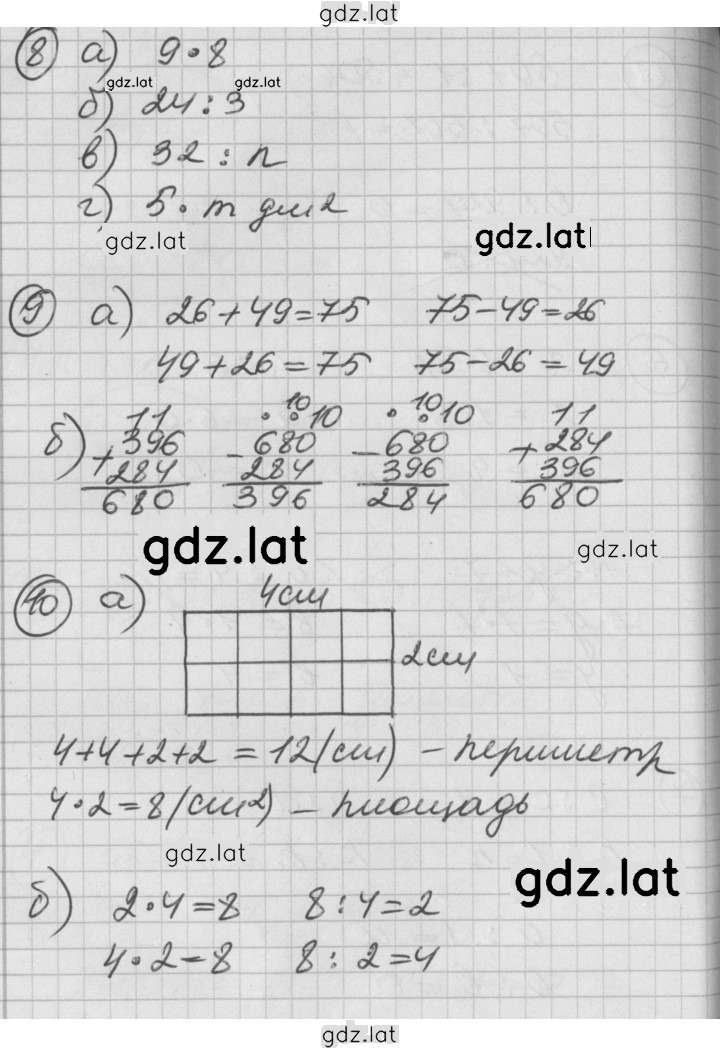 gdz.lat
8 а) 9·8
gdz.lat gdz.lat
б) 24:3
в) 32:n
г) 5·m дм2
gdz.lat gdz.lat
9 а) 26+49=75 75-49=26
49+26=75 75-26=49
11 · 10 · 10 · 10 · 10 11
б) +396 -680 -680 +284
284 284 396 396
680 396 284 680
gdz.lat gdz.lat
10 а) 4см
2см
4+4+2+2=12(см) – периметр
4·2=8(см2) – площадь
gdz.lat gdz.lat
б) 2·4=8 8:4=2
4·2=8 8:2=4
gdz.lat